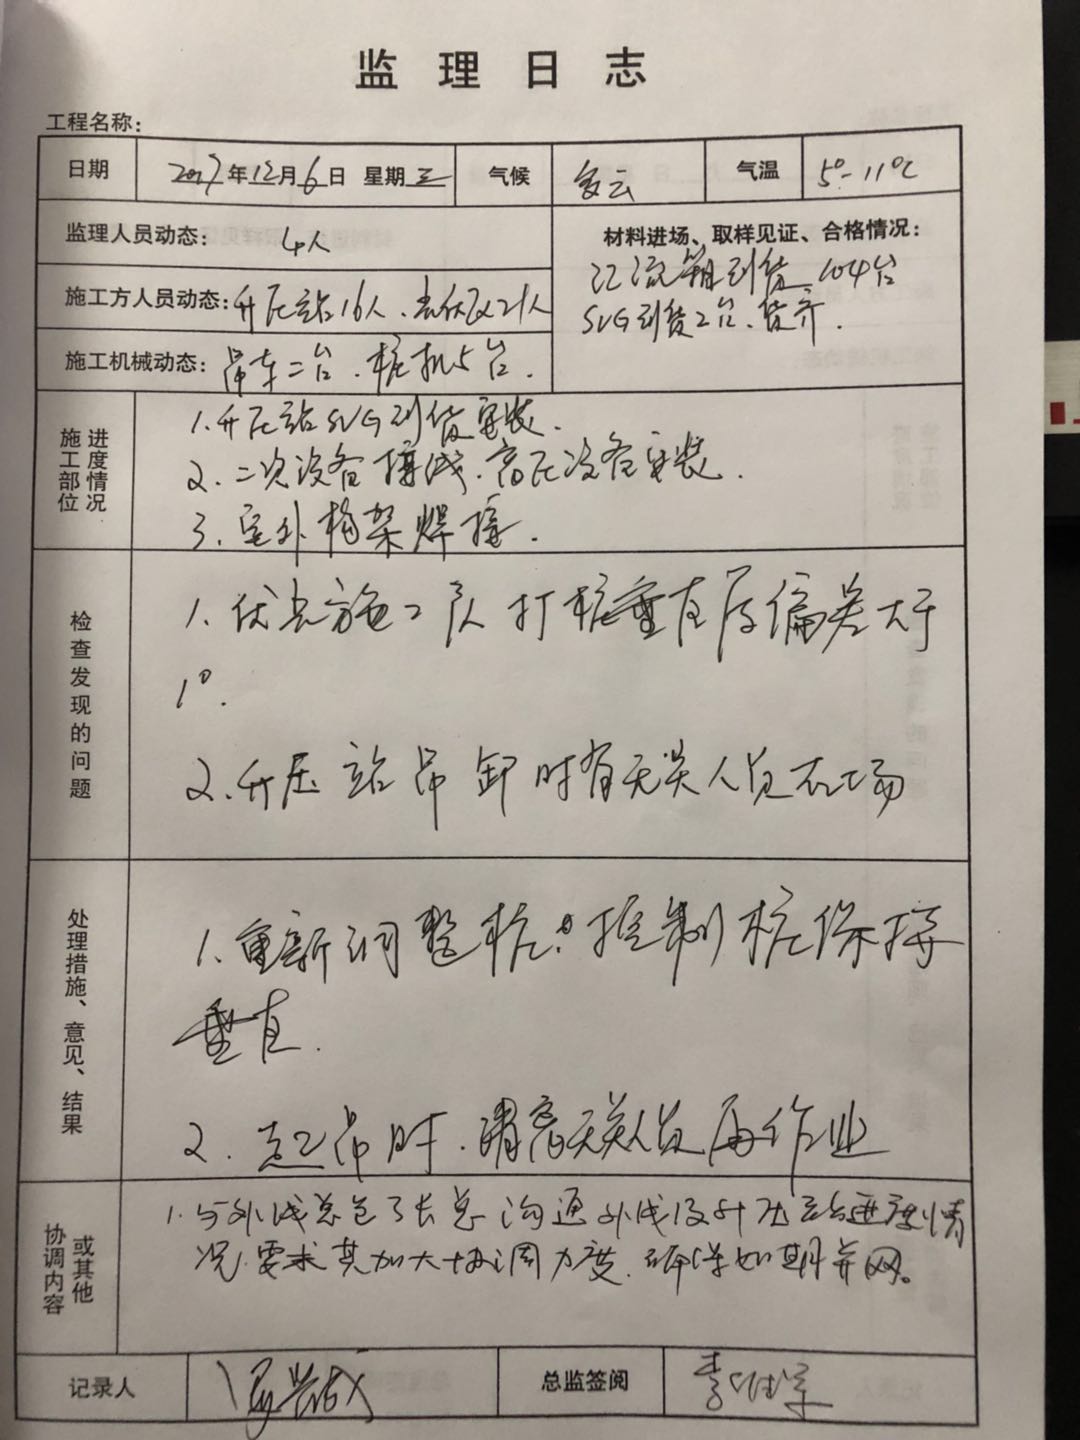 监理日志
工程名称：
日期 2017年12月6日 星期三 气候 多云 气温 5°-11℃
监理人员动态： 4人
材料进场、取样见证、合格情况：
汇流箱到货 104台
SVG到货2台、货齐.
施工方人员动态：升压站16人、光伏区21人
施工机械动态：吊车二台、桩机5台.
施工部位进度情况
1.升压站SVG到货安装.
2、二次设备接线、高压设备安装.
3、室外构架焊接.
检查发现的问题
1、施工队打桩垂直度偏差大于
1°.
2、升压站吊卸时有无关人员在场
处理措施、意见、结果
1、重新调整桩，控制桩保持
垂直.
2、起吊时、清离无关人员再作业
协调内容或其他
1.与外线总包了长总沟通外线及升压站进度情
况，要求其加大协调力度、确保如期并网。
记录人 总监签阅